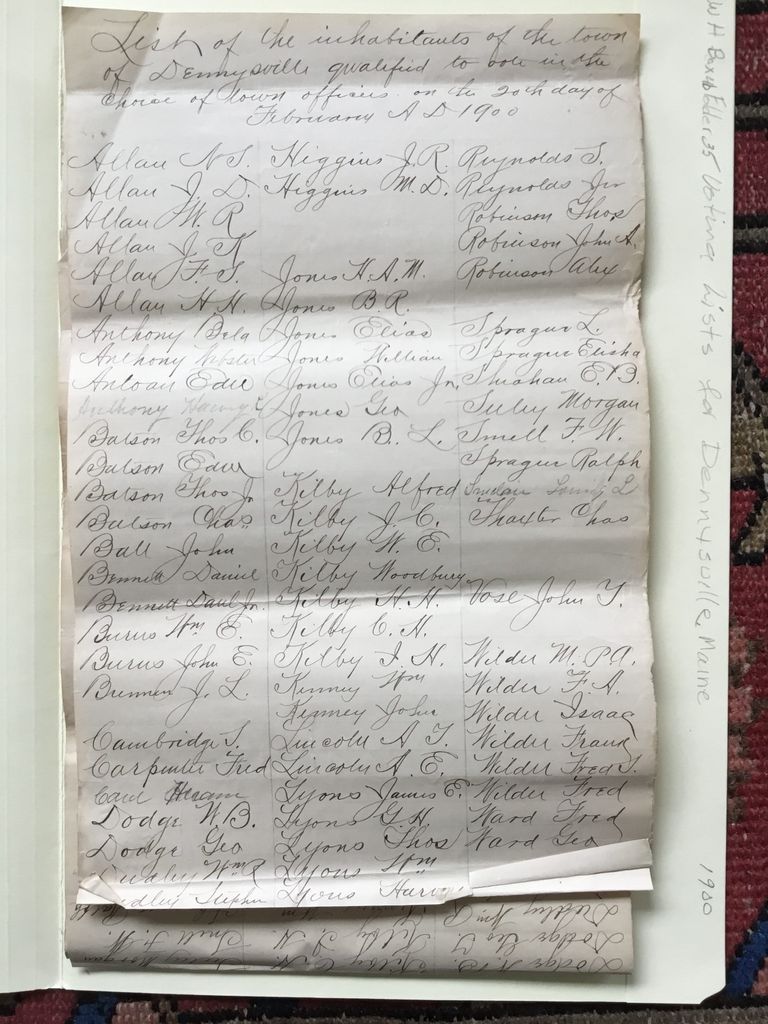 List of the inhabitants of the town
of Dennysville qualified to vote in the
choice of town officers on the 20th day of
February A D 1900
Allan N S.
Allan J. D.
Allan W. R
Allan J. K
Allan F. S.
Allan H. H.
Anthony Bela
Anthony Webster
Edw
Anthony
Batson Thos C.
Batson Edw
Batson Thos Jr
Batson Chas
Ball John
Bennett Daniel
Bennett Danl Jr.
Burns Wm E.
Burns John E.
J. L.
Cambridge S.
Carpenter Fred
Card Hiram
Dodge W. B.
Dodge Geo
Dudley Wm R
Dudley Stephen
Higgins J. R.
Higgins M. D.
Jones H. A. M.
Jones B. R.
Jones Elias
Jones William
Jones Elias Jr.
Jones Geo
Jones B. L.
Kilby Alfred
Kilby J. C.
Kilby W. E.
Kilby Woodbury
Kilby H. H.
Kilby C. H.
Kilby I. H.
Kinney Wm
Kinney John
Lincoln A T.
Lincoln A. E.
Lyons James E.
Lyons G H
Lyons Thos
Lyons Wm
Lyons Harvey
Reynolds S.
Reynolds Jr
Robinson Thos
Robinson John A.
Robinson Alex
Sprague L.
Sprague Elisha
Shehan E. B.
Morgan
Smell F. W.
Sprague Ralph
Thaxter Chas
Vose John T.
Wilder M. P. A.
Wilder F. A.
Wilder Isaac
Wilder Frank
Wilder Fred S.
Wilder Fred
Ward Fred
Ward Geo
W H Box 16 Folder 35 Voting Lists for Dennysville, Maine 1900